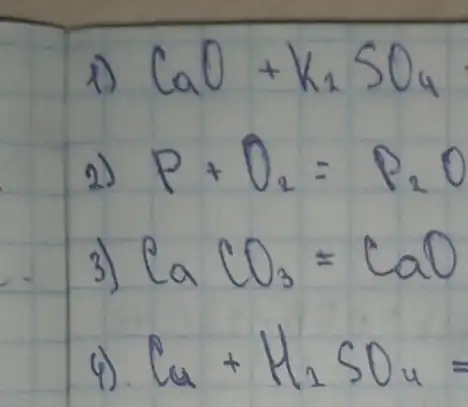 1) CaO + K₂SO₄
2) P + O₂ = P₂O
3) CaCO₃ = CaO
4) Ca + H₂SO₄ =